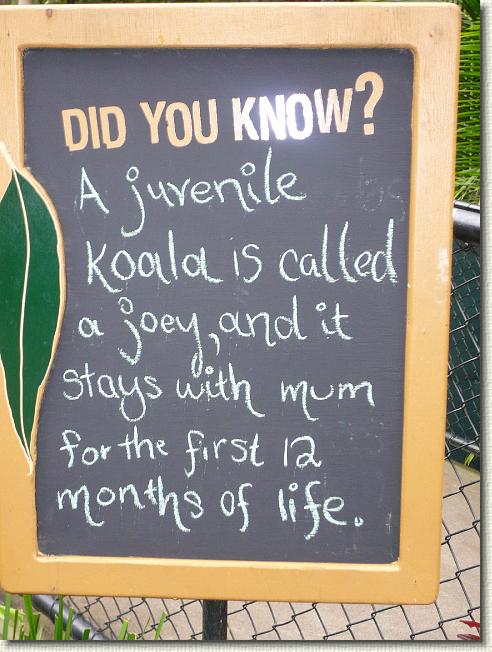 DID YOU KNOW?
A juvenile
koala is called
a joey, and it
stays with mum
for the first 12
months of life.